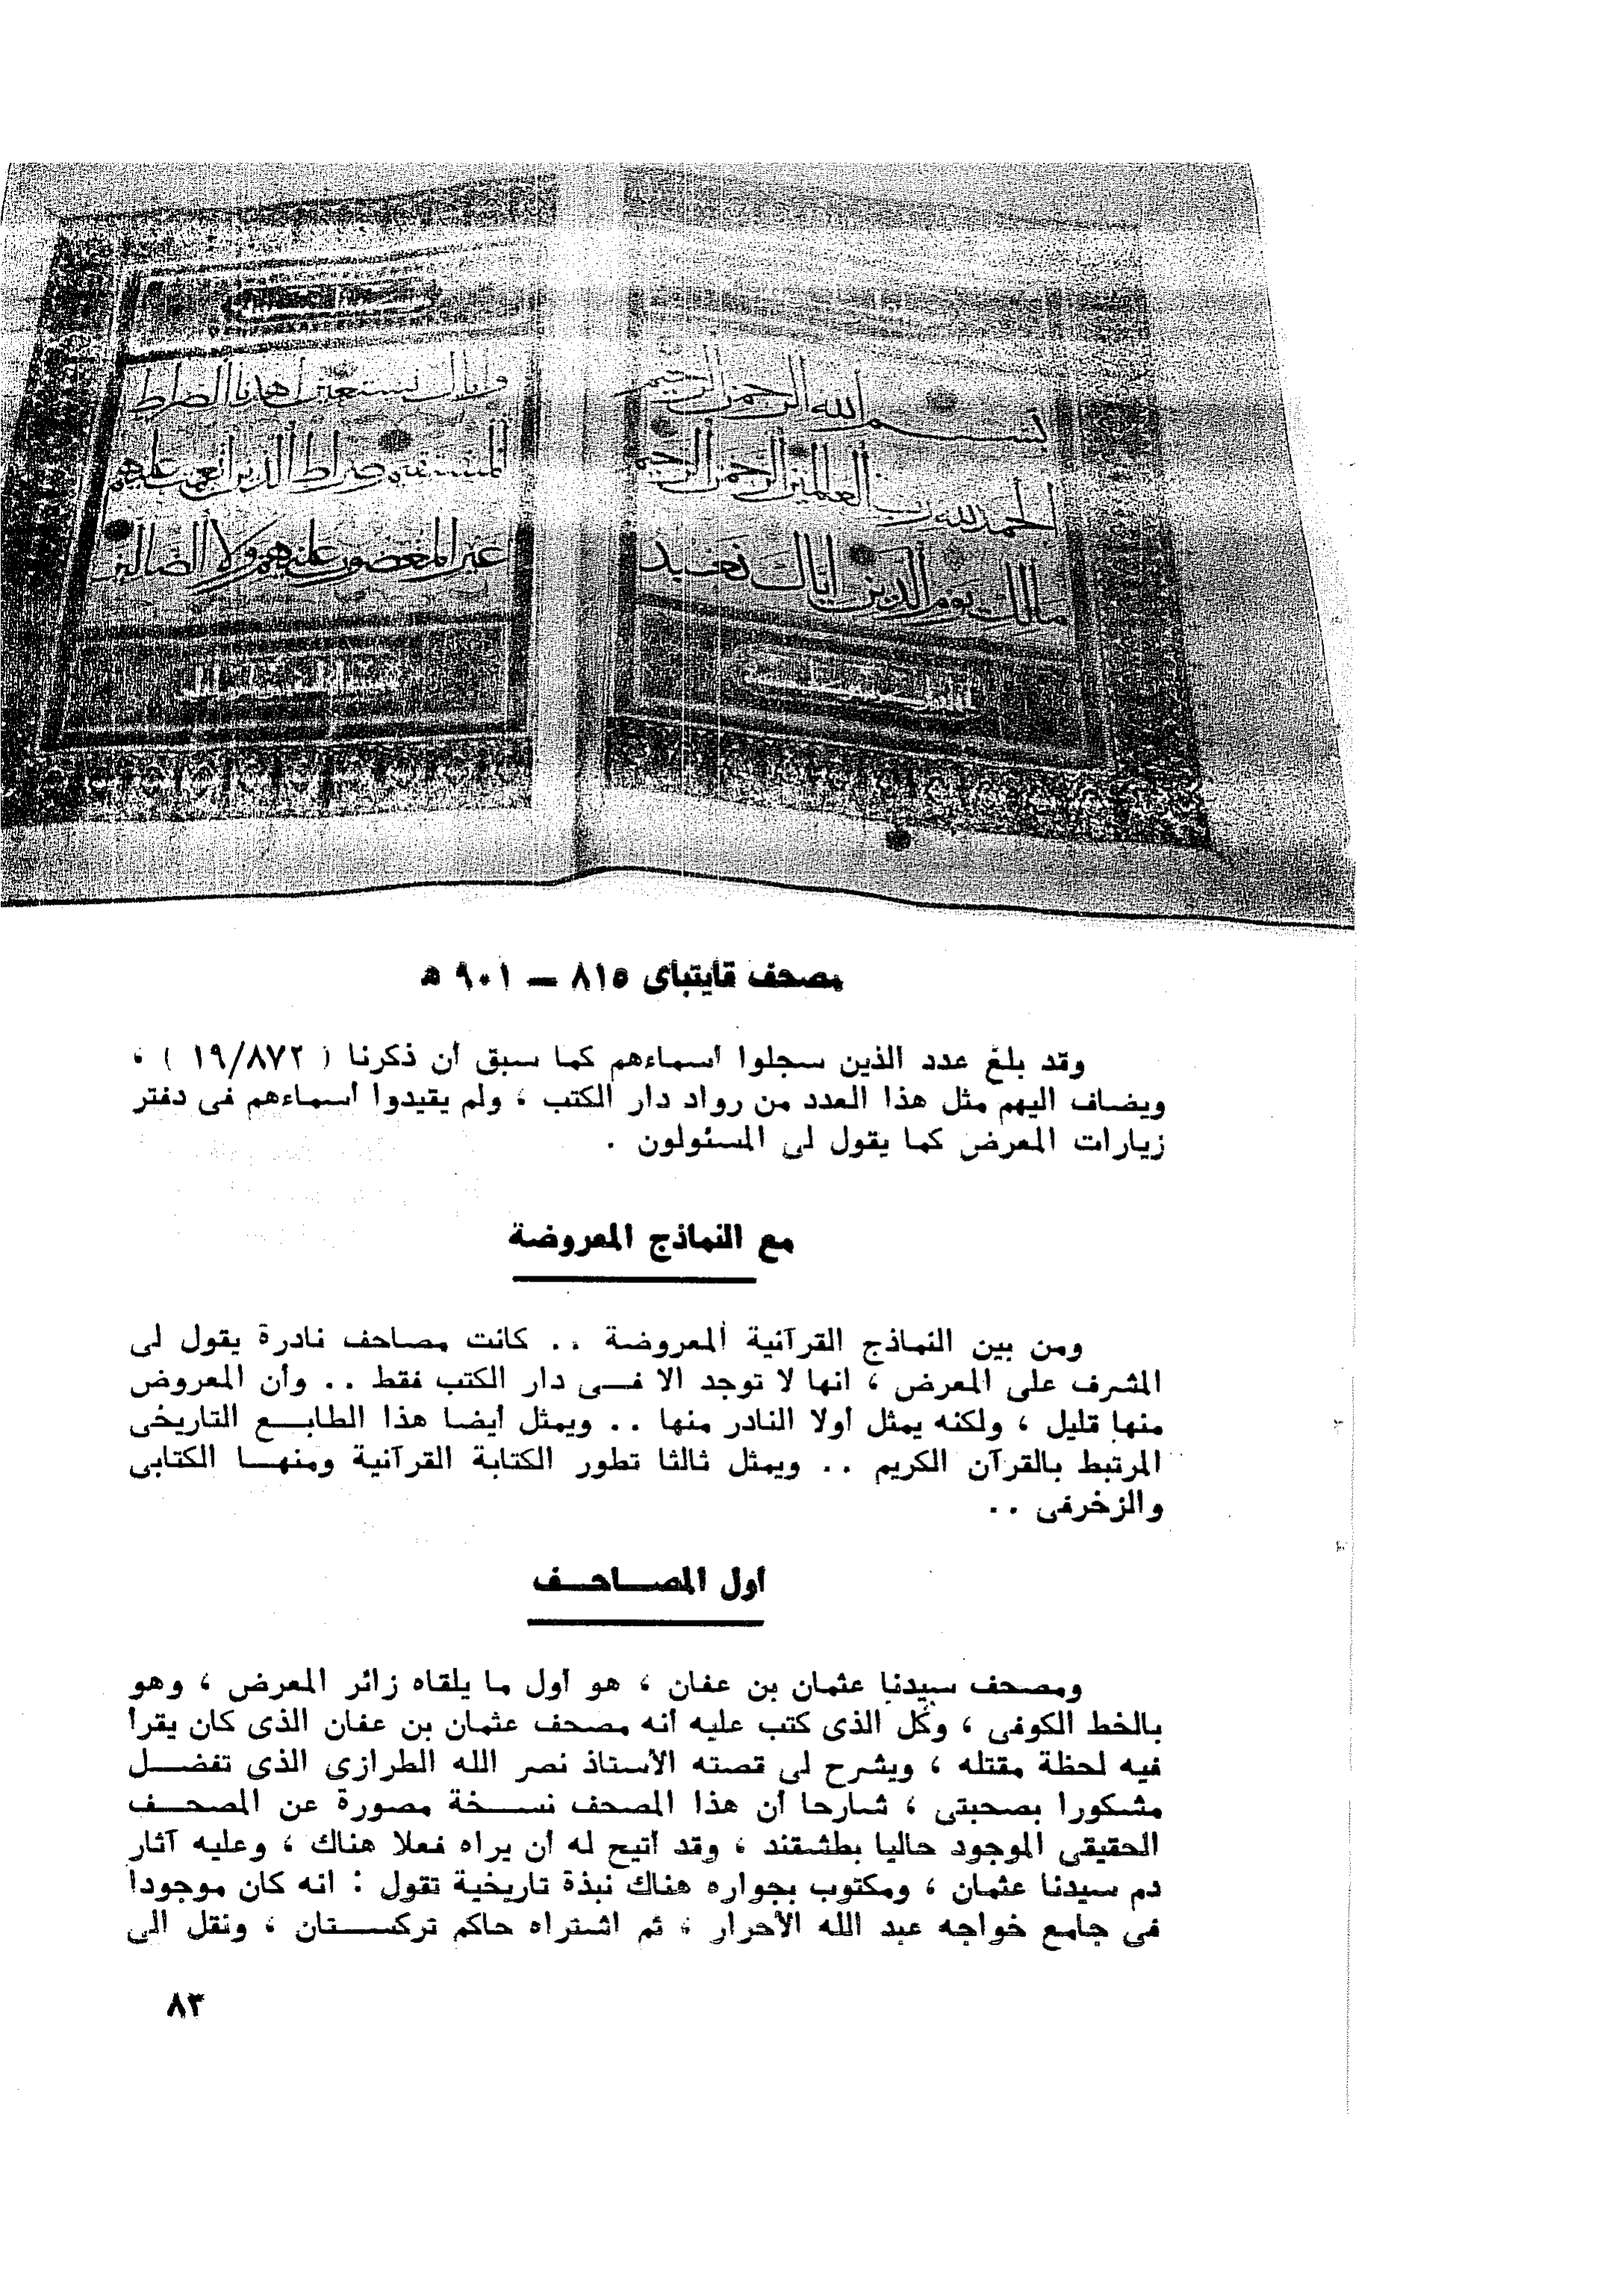 بسم الله الرحمن الرحيم
الحمد لله رب العالمين الرحمن الرحيم
مالك يوم الدين اياك نعبد
واياك نستعين اهدنا الصراط
المستقيم صراط الذين أنعمت عليهم
غير المغضوب عليهم ولا الضالين
مصحف قايتباى ٨١٥ – ٩٠١ ه
وقد بلغ عدد الذين سجلوا أسماءهم كما سبق أن ذكرنا ( ١٩/٨٧٢ ) ،
ويضاف اليهم مثل هذا العدد من رواد دار الكتب ، ولم يقيدوا أسماءهم فى دفتر
زيارات المعرض كما يقول لى المسئولون .
مع النماذج المعروضة
ومن بين النماذج القرآنية المعروضة .. كانت مصاحف نادرة يقول لى
المشرف على المعرض ، انها لا توجد الا فــى دار الكتب فقط .. وأن المعروض
منها قليل ، ولكنه يمثل أولا النادر منها .. ويمثل أيضا هذا الطابــع التاريخى
المرتبط بالقرآن الكريم .. ويمثل ثالثا تطور الكتابة القرآنية ومنهــا الكتابى
والزخرفى ..
أول المصــاحــف
ومصحف سيدنا عثمان بن عفان ، هو أول ما يلقاه زائر المعرض ، وهو
بالخط الكوفى ، وكل الذى كتب عليه أنه مصحف عثمان بن عفان الذى كان يقرأ
فيه لحظة مقتله ، ويشرح لى قصته الأستاذ نصر الله الطرازي الذى تفضــل
مشكورا بصحبتى ، شارحا أن هذا المصحف نســخة مصورة عن المصحــف
الحقيقى الموجود حاليا بطشقند ، وقد أتيح له أن يراه فعلا هناك ، وعليه آثار
دم سيدنا عثمان ، ومكتوب بجواره هناك نبذة تاريخية تقول : انه كان موجودا
فى جامع خواجه عبد الله الأحرار ، ثم اشتراه حاكم تركســتان ، ونقل الى
٨٣